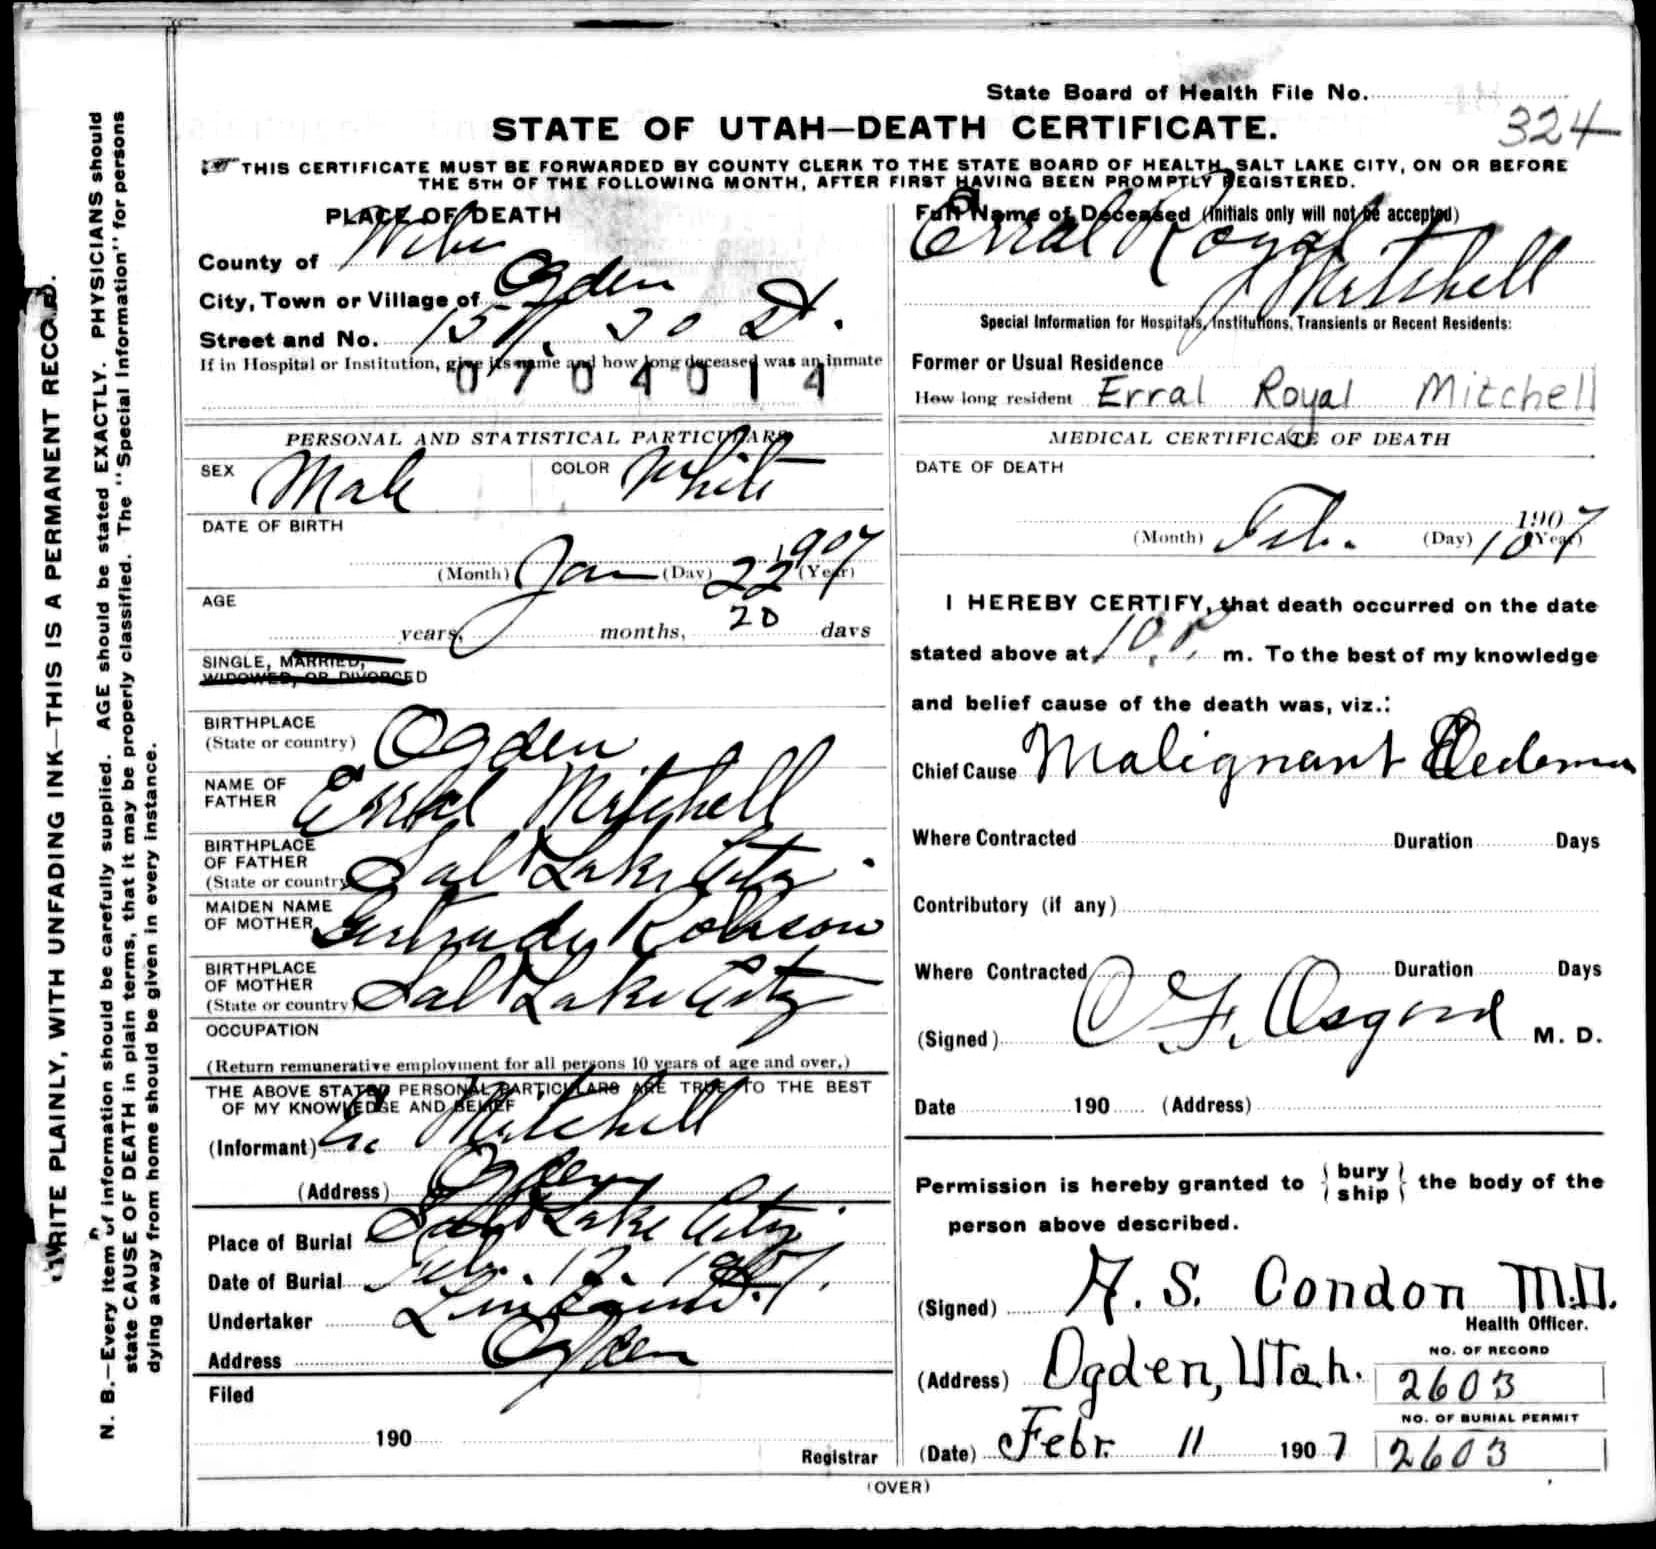 State Board of Health File No.
324
STATE OF UTAH—DEATH CERTIFICATE.
THIS CERTIFICATE MUST BE FORWARDED BY COUNTY CLERK TO THE STATE BOARD OF HEALTH, SALT LAKE CITY, ON OR BEFORE
THE 5TH OF THE FOLLOWING MONTH, AFTER FIRST HAVING BEEN PROMPTLY REGISTERED.
WRITE PLAINLY, WITH UNFADING INK—THIS IS A PERMANENT RECORD.
N. B.—Every item of information should be carefully supplied. AGE should be stated EXACTLY. PHYSICIANS should
state CAUSE OF DEATH in plain terms, that it may be properly classified. The "Special Information" for persons
dying away from home should be given in every instance.
PLACE OF DEATH
County of Weber
City, Town or Village of Ogden
Street and No. 30 St.
If in Hospital or Institution, give its name and how long deceased was an inmate
0704014
PERSONAL AND STATISTICAL PARTICULARS
SEX Male COLOR White
DATE OF BIRTH
(Month) Jan (Day) 22 1907 (Year)
AGE
years, months, 20 days
SINGLE, MARRIED,
WIDOWED, OR DIVORCED
BIRTHPLACE
(State or country) Ogden
NAME OF
FATHER Erral Mitchell
BIRTHPLACE
OF FATHER
(State or country) Salt Lake City
MAIDEN NAME
OF MOTHER Gertrude Robson
BIRTHPLACE
OF MOTHER
(State or country) Salt Lake City
OCCUPATION
(Return remunerative employment for all persons 10 years of age and over.)
THE ABOVE STATED PERSONAL PARTICULARS ARE TRUE TO THE BEST
OF MY KNOWLEDGE AND BELIEF
(Informant) E. Mitchell
(Address) Ogden
Place of Burial Salt Lake City
Date of Burial Feb. 12. 1907.
Undertaker Lindquist
Address Ogden
Filed
190
Registrar
Full Name of Deceased (Initials only will not be accepted)
Erral Royal
Mitchell
Special Information for Hospitals, Institutions, Transients or Recent Residents:
Former or Usual Residence
How long resident Erral Royal Mitchell
MEDICAL CERTIFICATE OF DEATH
DATE OF DEATH
1907
(Month) Feb. (Day) 10 (Year)
I HEREBY CERTIFY, that death occurred on the date
stated above at 10 P. m. To the best of my knowledge
and belief cause of the death was, viz.:
Chief Cause Malignant Oedema
Where Contracted Duration Days
Contributory (if any)
Where Contracted Duration Days
(Signed) O. F. Osgood M. D.
Date 190 (Address)
Permission is hereby granted to { bury ship } the body of the
person above described.
(Signed) A. S. Condon M.D.
Health Officer.
(Address) Ogden, Utah.
NO. OF RECORD
2603
NO. OF BURIAL PERMIT
(Date) Febr. 11 1907 2603
(OVER)